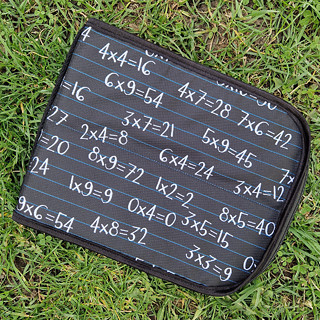 4
4x4=16
6x9=54
4x7=28
7x6=42
=16
3x7=21
5x9=45
27
2x4=8
6x4=24
7x
=20
8x9=72
3x4=12
24
1x9=9
1x2=2
8x5=40
0x4=0
3x5=15
9x6=54
4x8=32
3x3=9
0